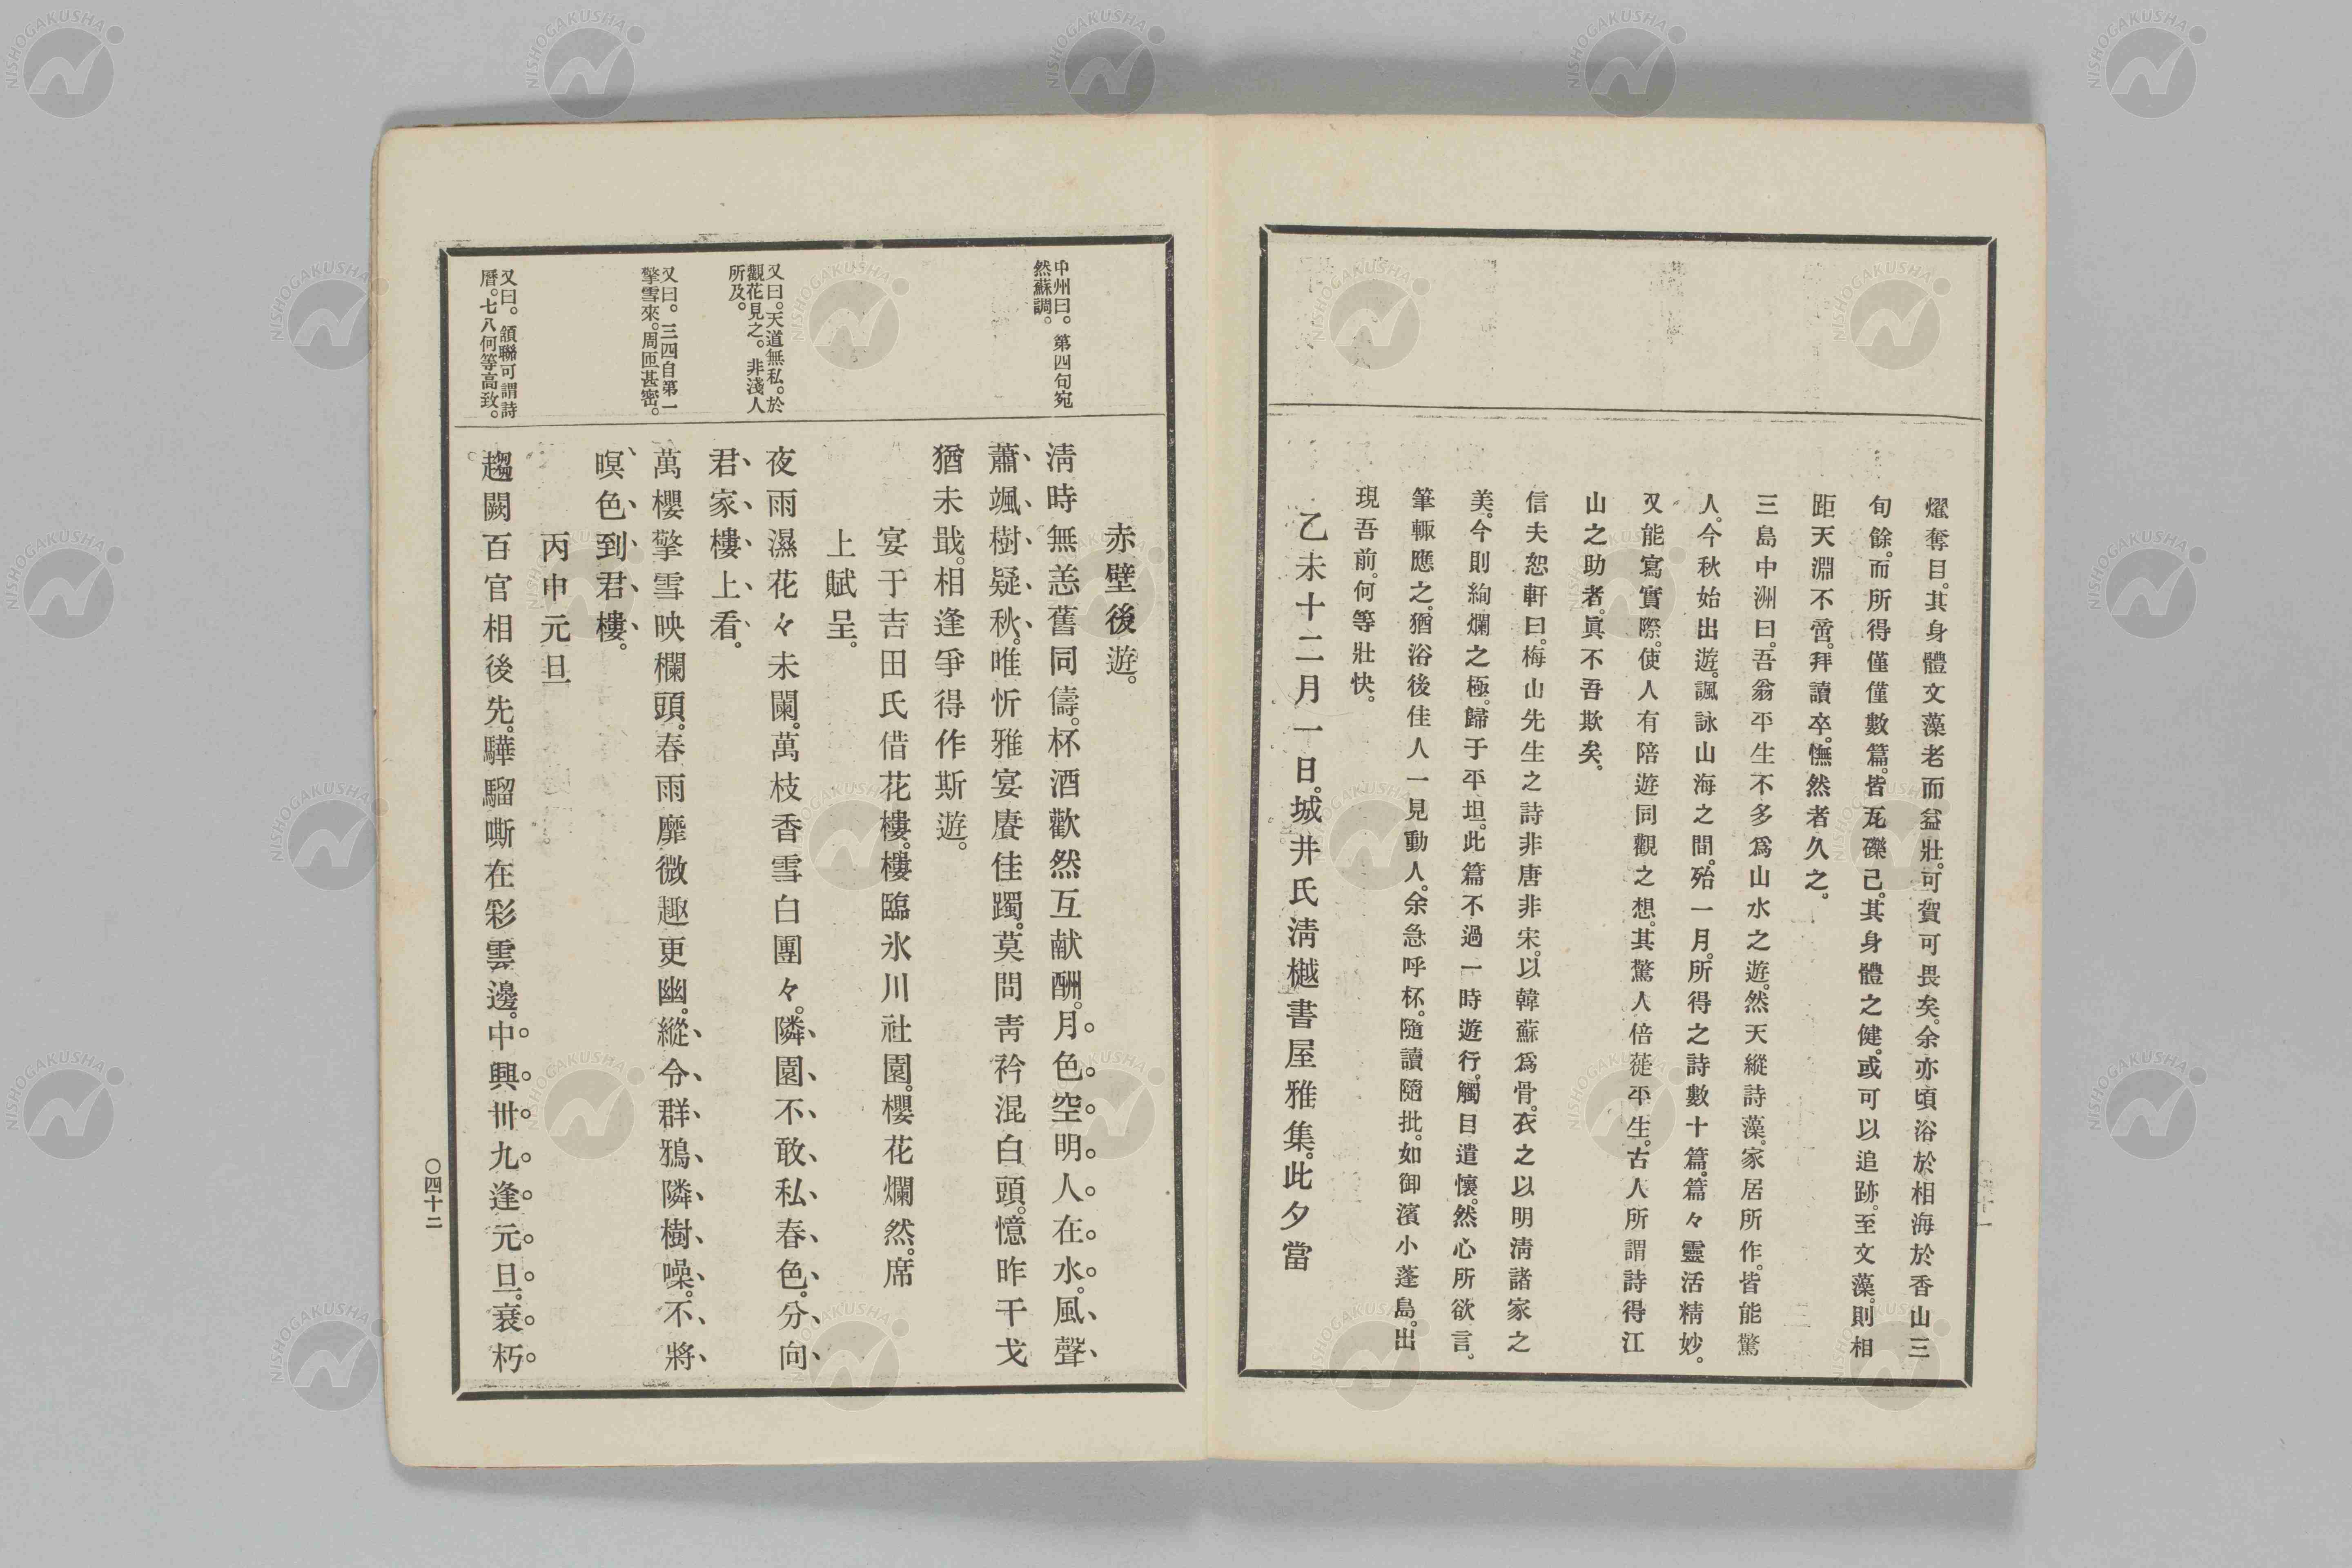 燿奪目。其身體文藻老而益壯。可賀可畏矣。余亦頃浴於相海於香山三
旬餘。而所得僅僅數篇。皆瓦礫己。其身體之健。或可以追跡。至文藻。則相
距天淵不啻。拜讀卒。憮然者久之。
三島中洲曰。吾翁平生不多爲山水之遊。然天縱詩藻。家居所作。皆能驚
人。今秋始出遊。諷詠山海之間。殆一月。所得之詩數十篇。篇々靈活精妙。
又能寫實際。使人有陪遊同觀之想。其驚人倍蓰平生。古人所謂詩得江
山之助者。眞不吾欺矣。
信夫恕軒曰。梅山先生之詩非唐非宋。以韓蘇爲骨。衣之以明淸諸家之
美。今則絢爛之極。歸于平坦。此篇不過一時遊行。觸目遣懷。然心所欲言。
筆輙應之。猶浴後佳人一見動人。余急呼杯。隨讀隨批。如御濱小蓬島。出
現吾前。何等壯快。
乙未十二月一日。城井氏淸樾書屋雅集。此夕當
赤壁後遊。
中州曰。第四句宛
然蘇調。
淸時無恙舊同儔。杯酒歡然互献酬。月色空明人在水。風聲
蕭颯樹疑秋。唯忻雅宴賡佳躅。莫問靑衿混白頭。憶昨干戈
猶未戢。相逢爭得作斯遊。
宴于吉田氏借花樓。樓臨氷川社園。櫻花爛然。席
上賦呈。
又曰。天道無私。於
觀花見之。非淺人
所及。
夜雨濕花々未闌。萬枝香雪白團々。隣園不敢私春色。分向
君家樓上看。
又曰。三四自第一
擎雪來。周匝甚密。
萬櫻擎雪映欄頭。春雨靡微趣更幽。縱令群鴉隣樹噪。不將
暝色到君樓。
丙申元旦
又曰。頷聯可謂詩
曆。七八何等高致。
趨闕百官相後先。驊騮嘶在彩雲邊。中興卅九逢元旦。衰朽
〇四十二